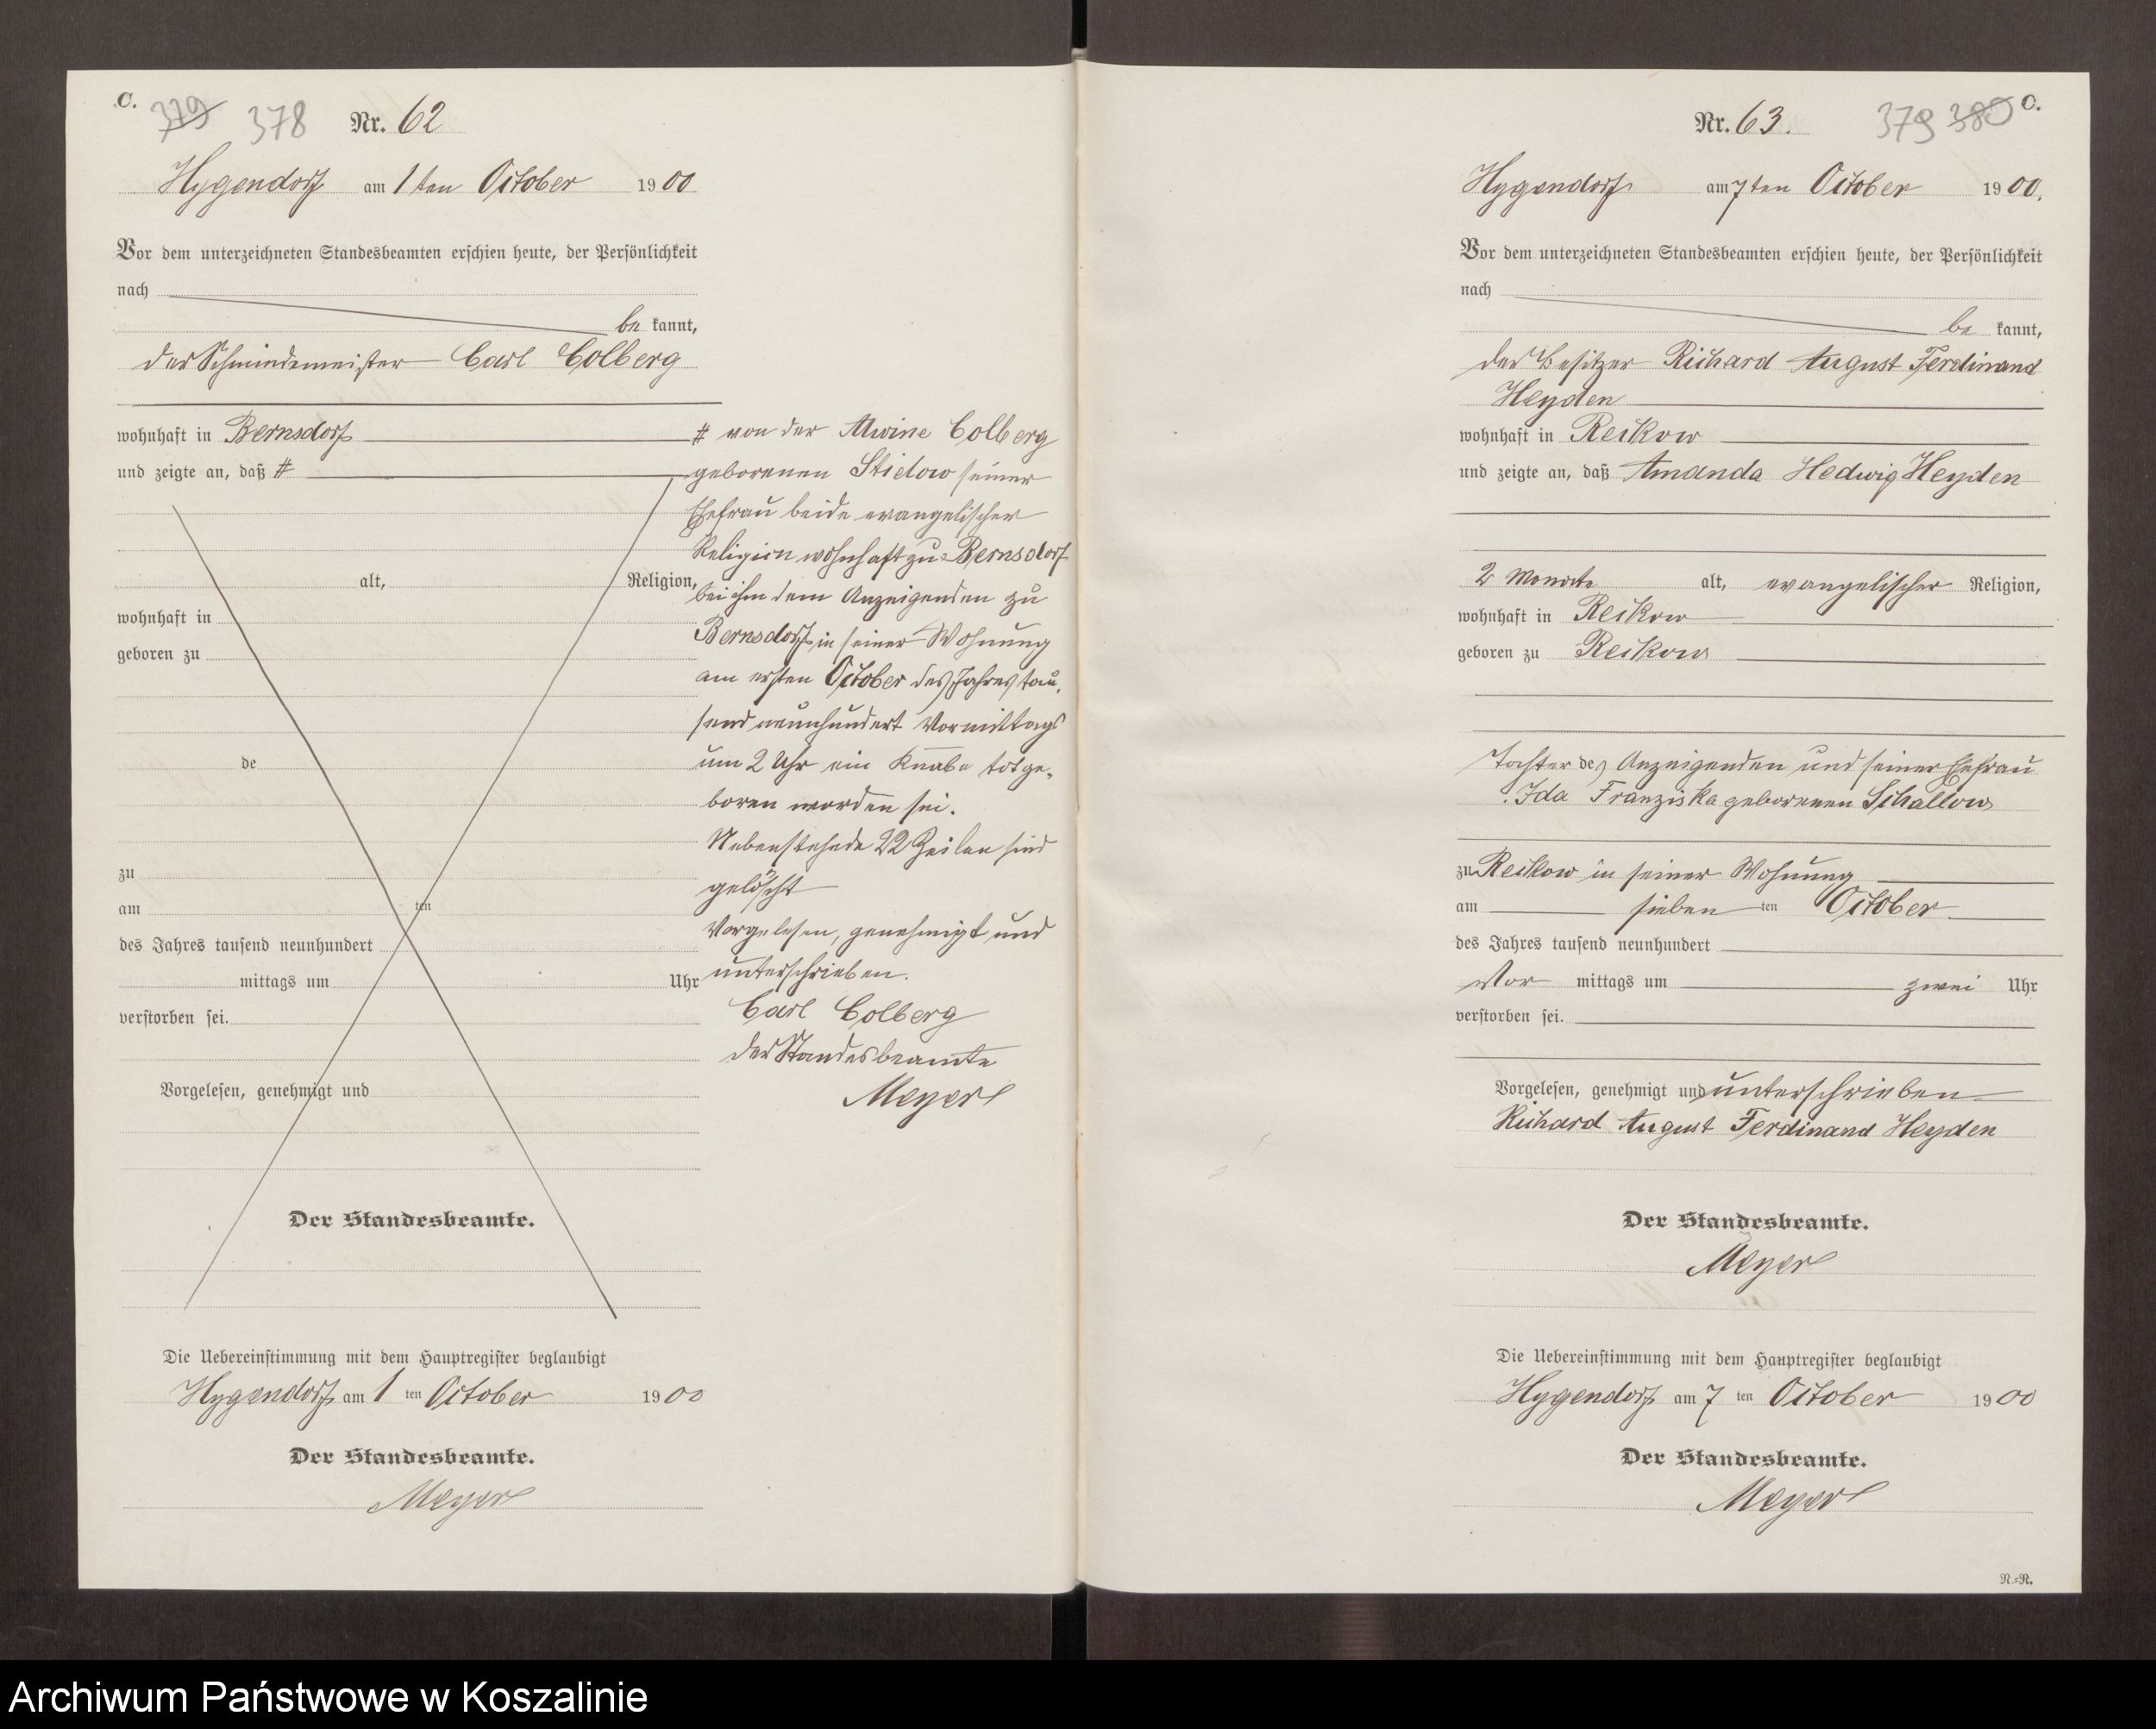 C.
379 378 Nr. 62
Hygendorf am 1 ten October 1900
Vor dem unterzeichneten Standesbeamten erschien heute, der Persönlichkeit
nach
be kannt,
der Schmiedemeister Carl Colberg
wohnhaft in Bernsdorf
und zeigte an, daß #
alt, Religion,
wohnhaft in
geboren zu
de
zu
am ten
des Jahres tausend neunhundert
mittags um Uhr
verstorben sei.
Vorgelesen, genehmigt und
Der Standesbeamte.
# von der Alwine Colberg
geborenen Stielow seiner
Ehefrau beide evangelischer
Religion wohnhaft zu Bernsdorf
bei ihm dem Anzeigenden zu
Bernsdorf in seiner Wohnung
am ersten October des Jahres tau-
send neunhundert Vormittags
um 2 Uhr ein Knabe totge-
boren worden sei.
Nebenstehende 22 Zeilen sind
gelöscht
Vorgelesen, genehmigt und
unterschrieben.
Carl Colberg
der Standesbeamte
Meyer
Die Uebereinstimmung mit dem Hauptregister beglaubigt
Hygendorf am 1 ten October 1900
Der Standesbeamte.
Meyer
Nr. 63. 379 380 C.
Hygendorf am 7 ten October 1900.
Vor dem unterzeichneten Standesbeamten erschien heute, der Persönlichkeit
nach
be kannt,
der Besitzer Richard August Ferdinand
Heyden
wohnhaft in Reikow
und zeigte an, daß Amanda Hedwig Heyden
2 Monate alt, evangelischer Religion,
wohnhaft in Reikow
geboren zu Reikow
Tochter des Anzeigenden und seiner Ehefrau
Ida Franziska geborenen Schallow
zu Reikow in seiner Wohnung
am sieben ten October
des Jahres tausend neunhundert
Vor mittags um zwei Uhr
verstorben sei.
Vorgelesen, genehmigt und unterschrieben
Richard August Ferdinand Heyden
Der Standesbeamte.
Meyer
Die Uebereinstimmung mit dem Hauptregister beglaubigt
Hygendorf am 7 ten October 1900
Der Standesbeamte.
Meyer
R.=R.
Archiwum Państwowe w Koszalinie